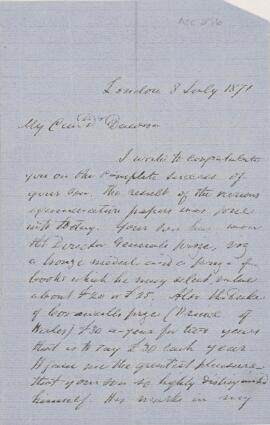 London 8 July 1871
My Dear Dawson
I write to congratulate
you on the complete success of
your son. The result of the various
examination papers was gone
into today. Your son has won
the Director Generals prize, viz
a bronze medal and a prize of
books which he may select, value
about £20 or £25. Also the Duke
of Cornwalls prize (Prince of
Wales) £30 a-year for two years
that is to say £30 each year
It gave me the greatest pleasure
that your son so highly distinguished
himself. His marks in my